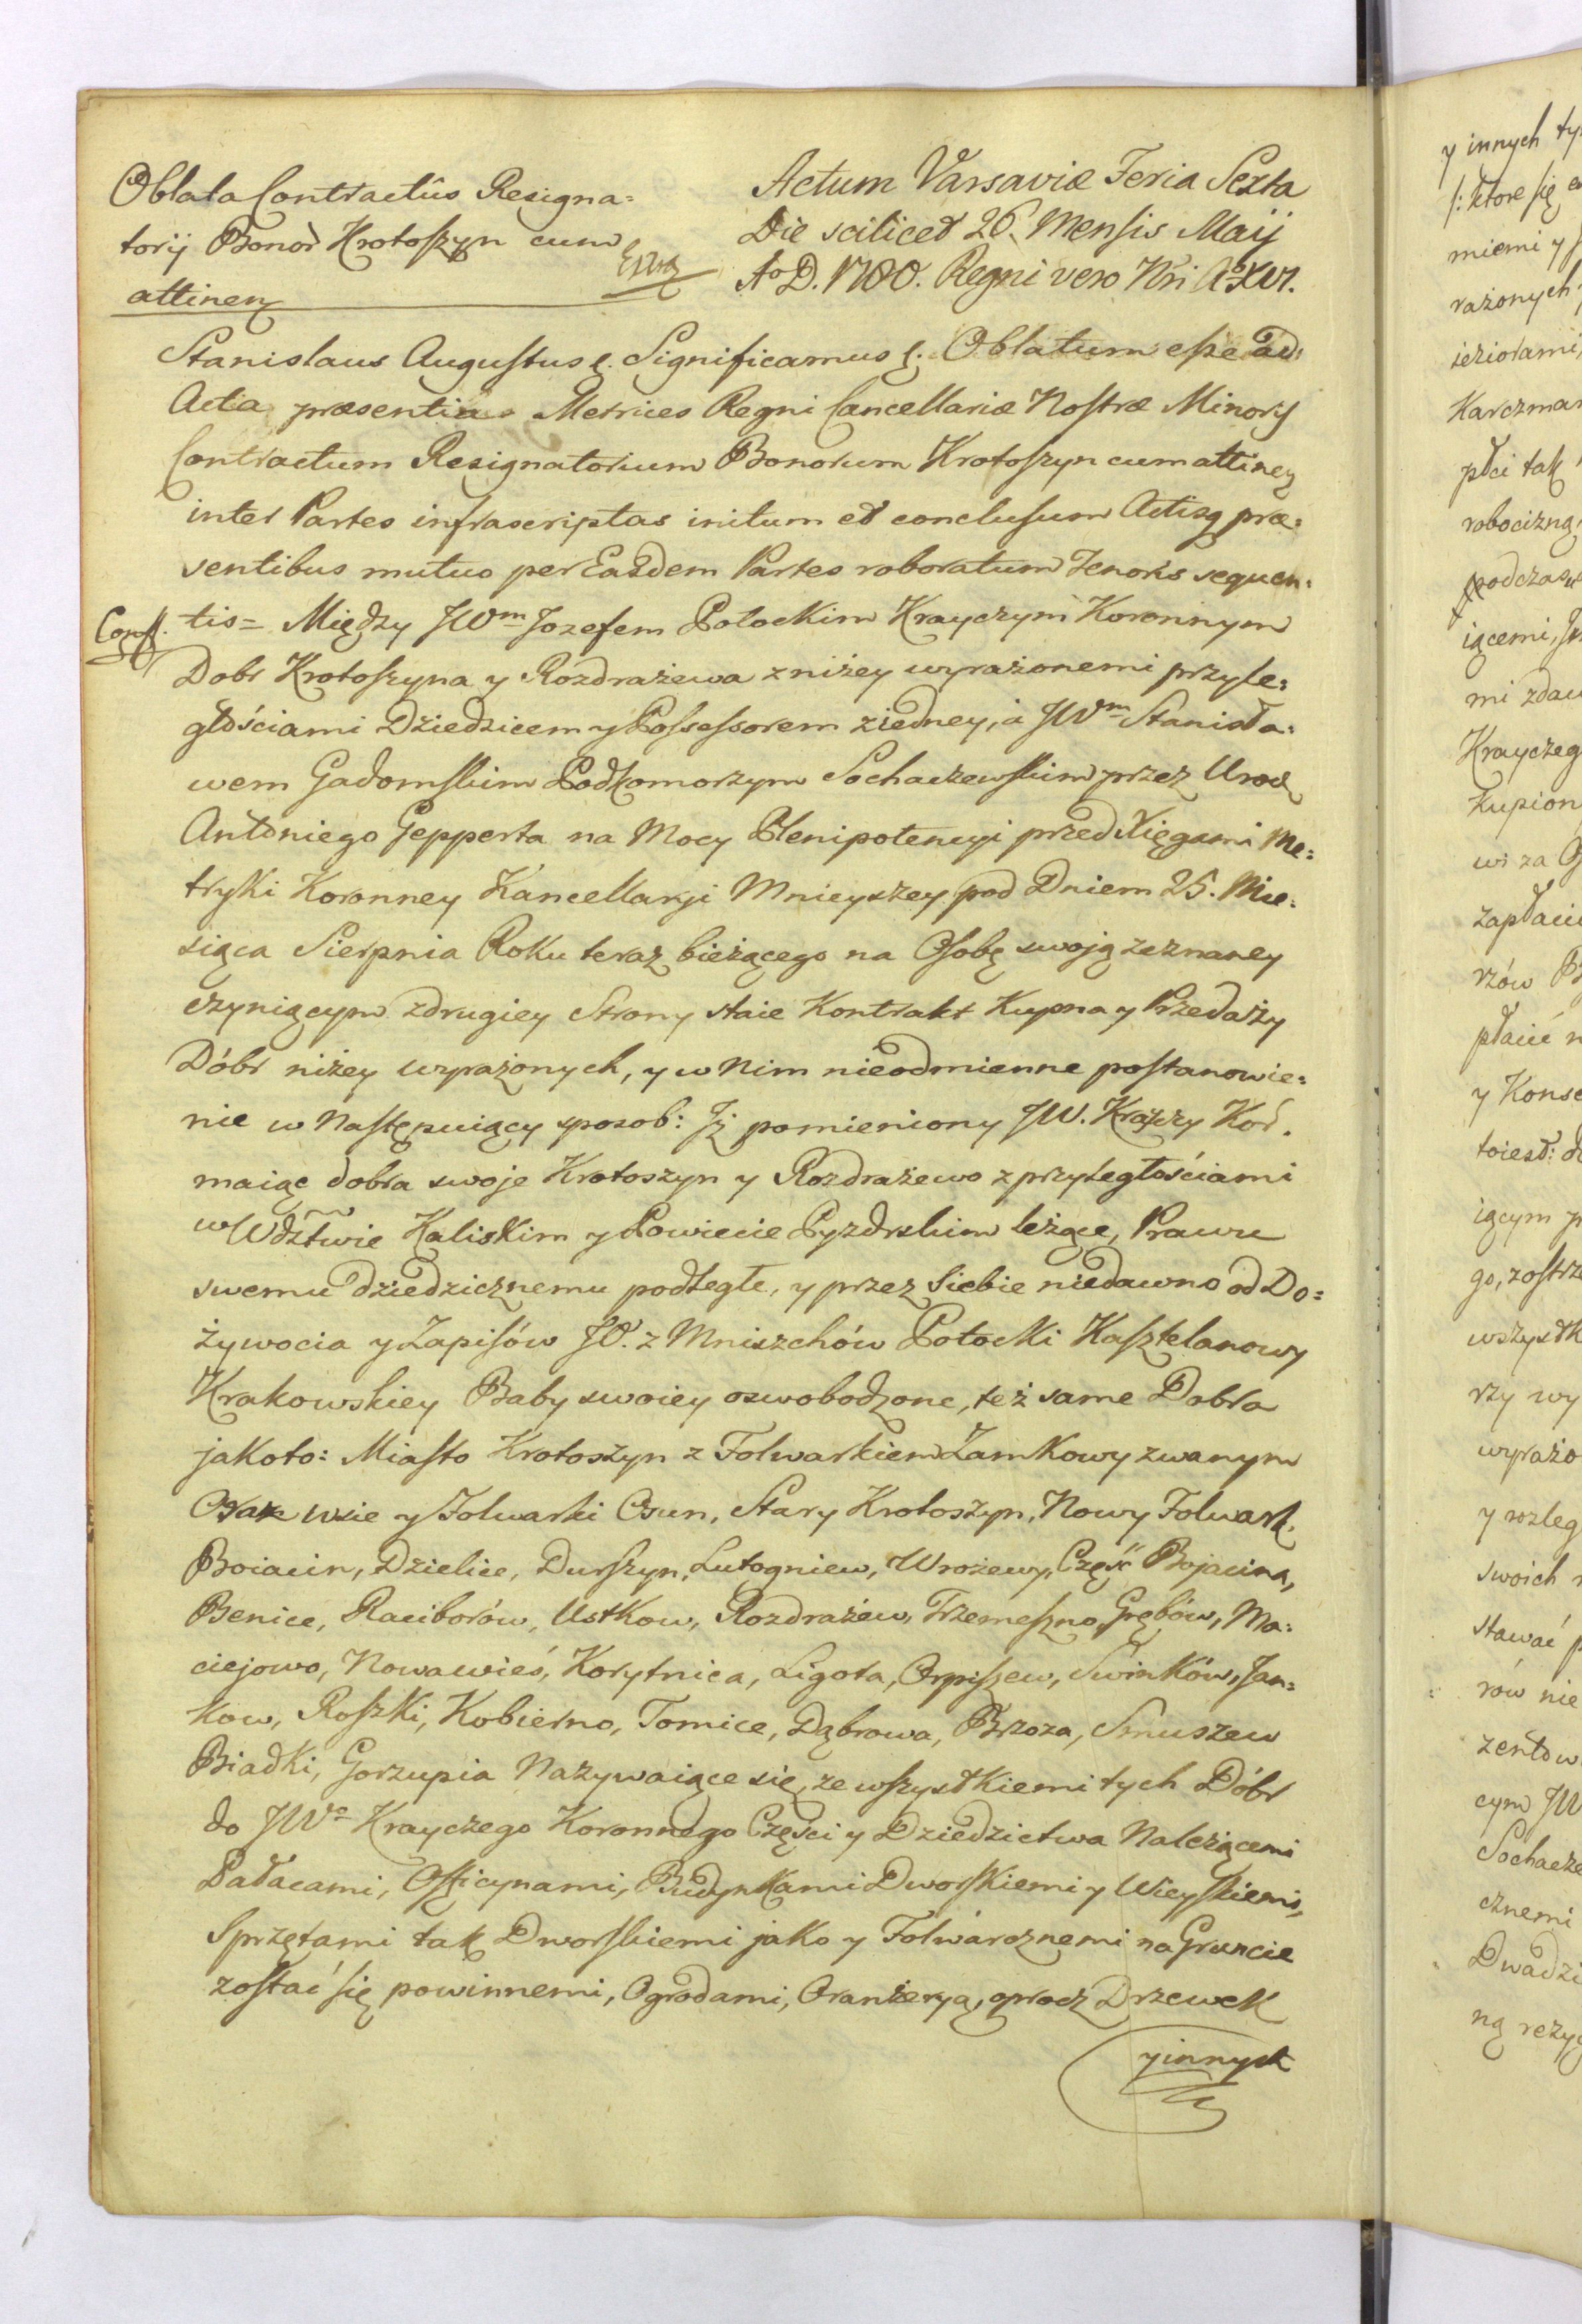 Oblata Contractûs Resigna=
torij Bonor Krotoszyn cum
attinen
Extra
Actum Varsaviæ Feria Sexta
Die scilicet 26. Mensis Maij
Ao D. 1780. Regni vero Nri Ao XVI.
Stanislaus Augustus &. Significamus &. Oblatum esse ad
Acta præsentia Metrices Regni Cancellariæ Nostræ Minoris
Contractum Resignatorium Bonorum Krotoszyn cum attinen
inter Partes infrascriptas initum et conclusum Actisq præ=
sentibus mutuo per Easdem Partes roboratum Tenoris sequen=
tis= Między JWm Jozefem Potockim Krayczym Koronnym
Dobr Krotoszyna y Rozdrażewa z niżey wyrażonemi przyle=
głościami Dziedzicem y Possessorem z iedney, a JWm Stanisła=
wem Gadomskim Podkomorzym Sochaczewskim przez Urodz
Antoniego Gepperta na Mocy Plenipotencyi przed Xięgami Me=
tryki Koronney Kancellaryi Mnieyszey pod Dniem 25. Mie=
siąca Sierpnia Roku teraz bieżącego na Osobę swoją zeznaney
czyniącym z drugiey Strony staie Kontrakt Kupna y Przedaży
Dóbr niżey wyrażonych, y w Nim nieodmienne postanowie=
nie w Następuiący sposob: Jż pomieniony JW. Krayczy Kor.
maiąc dobra swoje Krotoszyn y Rozdrażewo z przyległościami
w Wdztwie Kaliskim y Powiecie Pyzdrskim leżące, Prawu
swemu dziedzicznemu podległe, y przez Siebie niedawno od Do=
żywocia y Zapisów JW. z Mniszchów Potocki Kasztelanowy
Krakowskiey Baby swoiey oswobodzone, też same Dobra
jakoto: Miasto Krotoszyn z Folwarkiem Zamkowy zwanym
wsie y Folwarki Osun, Stary Krotoszyn, Nowy Folwark,
Boiacin, Dzielice, Durszyn, Lutogniew, Wrożewy, Część Bojacina,
Benice, Raciborów, Ustkow, Rozdrażew, Trzemeszno, Grębów, Ma=
ciejowo, Nowawieś, Korytnica, Ligota, Orpiszew, Swinków, Jan=
kow, Roszki, Kobierno, Tomice, Dąbrowa, Brzoza, Smuszew
Biadki, Gorzupia Nazywaiące się, ze wszystkiemi tych Dóbr
do JWo Krayczego Koronnego Części y Dziedzictwa Należącemi
Pałacami, Officynami, Budynkami Dworskiemi y Wieyskiemi,
Sprzętami tak Dworskiemi jako y Folwarcznemi na Gruncie
zostać się powinnemi, Ogrodami, Oranżeryą, oprocz Drzewek
y innych
y innych
miemi y
rażonych
ieziorami,
Karczmar
płci tak
robocizną,
podczas
iącemi,
mi
Krayczeg
Kupion
wi za
rzów
płacić
y Konse
toiest:
iącym
wszystk
rzy wy
wyrażo
y rozleg
swoich
stawać
rów nie
cym JW
Sochacze
cznemi
Dwadzi